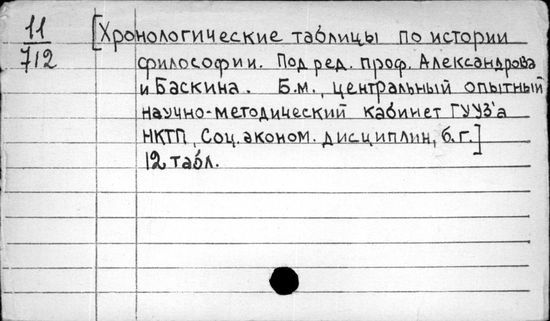 11
712
[Хронологические таблицы по истории
философии. Под ред. проф. Александрова
и Баскина. Б.м., центральный опытный
научно-методический кабинет ГУУЗ'а
НКТП, Соц. эконом. дисциплин, б.г.]
12 табл.